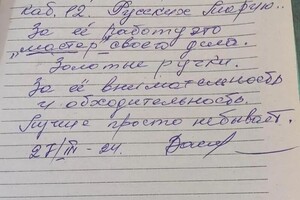 каб. 12. Русских Марию..
За её работу это
"мастер" своего дела.
Золотые ручки.
За её внимательность
и обходительность.
Лучше просто не бывает.
27/III - 24.